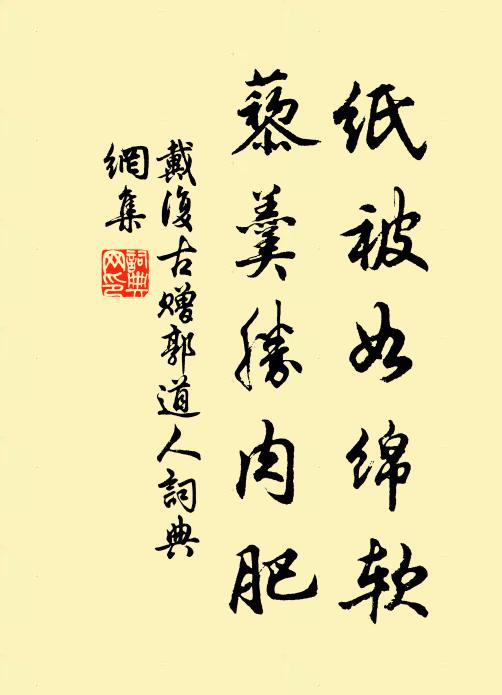 纸被如绵软
藜羹勝肉肥
戴復古赠郭道人詞典
網集
詞典
网印